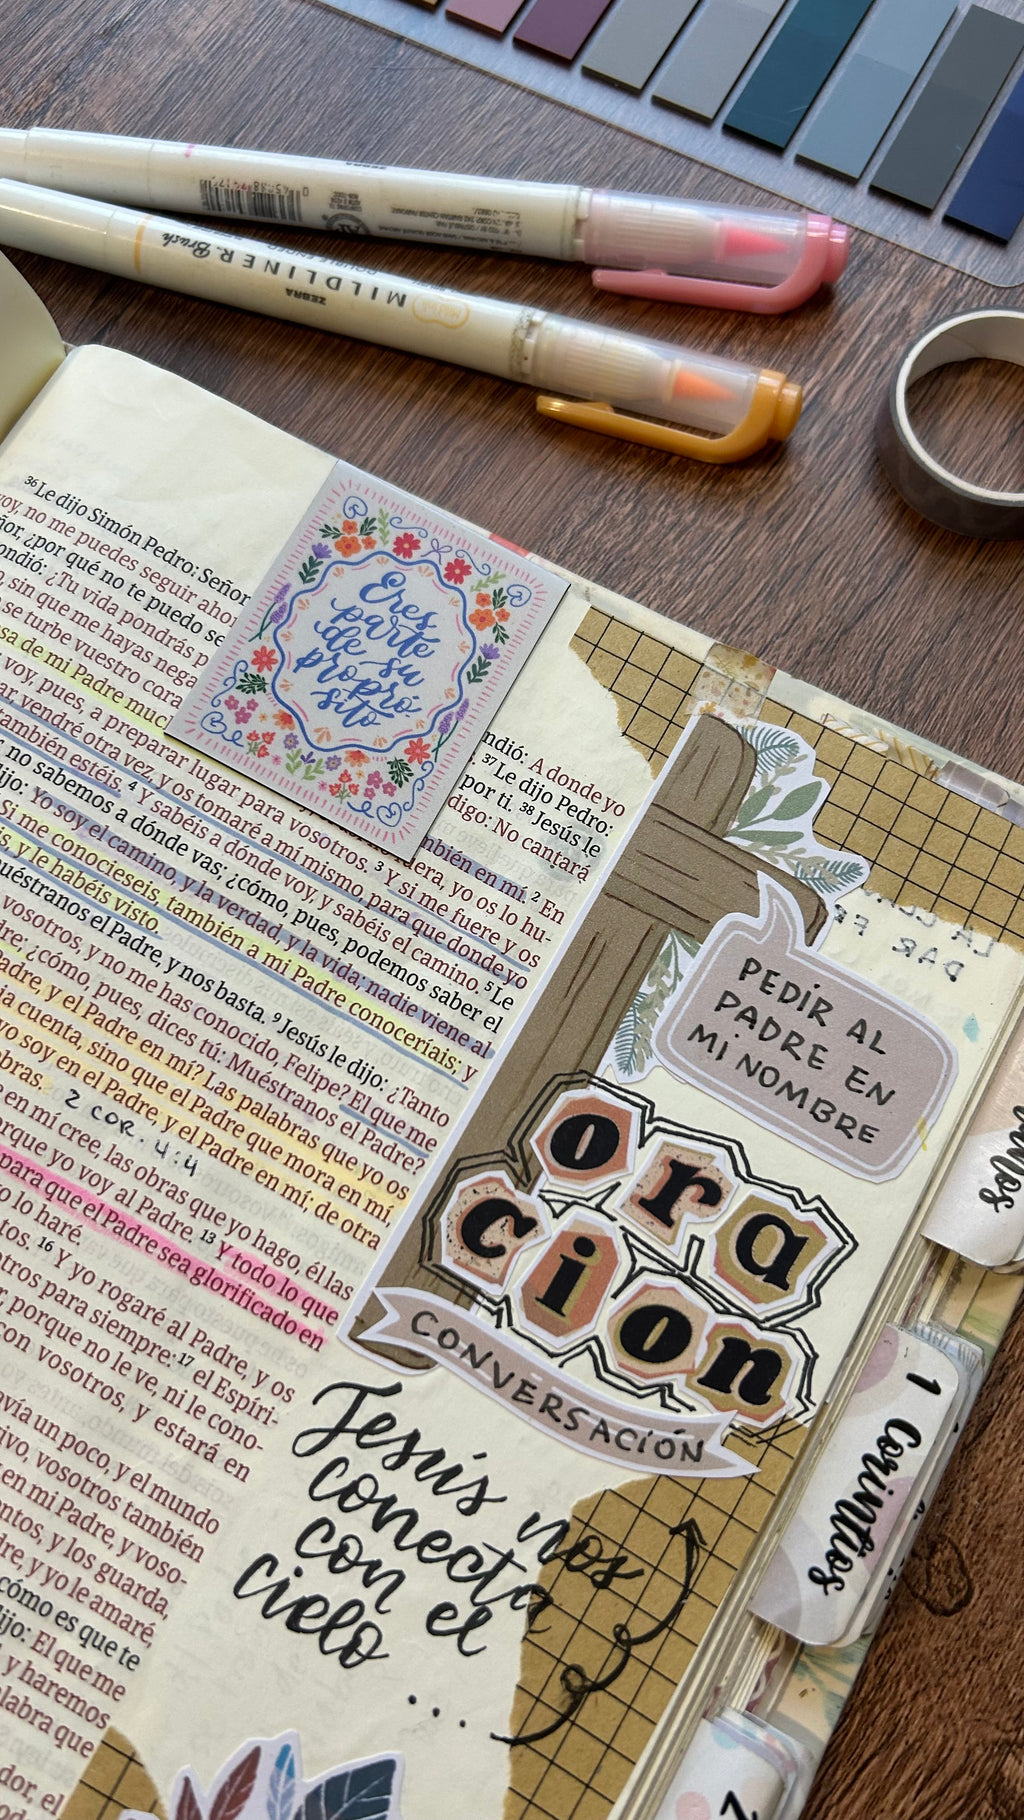 ZEBRA
ZEBRA
MILDLINER Brush
36 Le dijo Simón Pedro: Señor
ndió: A donde yo
voy, no me puedes seguir ahor
37 Le dijo Pedro:
ñor, ¿por qué no te puedo se
por ti. 38 Jesús le
ondió: ¿Tu vida pondrás p
digo: No cantará
, sin que me hayas nega
se turbe vuestro cora
mbién en mí. 2 En
sa de mi Padre muc
era, yo os lo hu-
voy, pues, a preparar lugar para vosotros. 3 Y si me fuere y os
ar vendré otra vez, y os tomaré a mí mismo, para que donde yo
también estéis. 4 Y sabéis a dónde voy, y sabéis el camino. 5 Le
no sabemos a dónde vas; ¿cómo, pues, podemos saber el
ijo: Yo soy el camino, y la verdad, y la vida; nadie viene al
Si me conocieseis, también a mi Padre conoceríais; y
is, y le habéis visto.
uéstranos el Padre, y nos basta. 9 Jesús le dijo: ¿Tanto
vosotros, y no me has conocido, Felipe? El que me
dre; ¿cómo, pues, dices tú: Muéstranos el Padre?
Padre, y el Padre en mí? Las palabras que yo os
ia cuenta, sino que el Padre que mora en mí,
yo soy en el Padre, y el Padre en mí; de otra
bras.
2 COR. 4:4
en mí cree, las obras que yo hago, él las
rque yo voy al Padre. 13 Y todo lo que
para que el Padre sea glorificado en
lo haré.
tos. 16 Y yo rogaré al Padre, y os
tros para siempre: 17 el Espíri-
porque no le ve, ni le cono-
con vosotros, y estará en
avía un poco, y el mundo
ivo, vosotros también
en mi Padre, y voso-
ntos, y los guarda,
dre, y yo le amaré,
cómo es que te
dijo: El que me
y haremos
labra que
dor, el
Eres
parte
de su
propó
sito
PEDIR AL
PADRE EN
MI NOMBRE
ora
cion
CONVERSACIÓN
Jesús nos
conecta
con el
cielo
...
1 Corintios
2